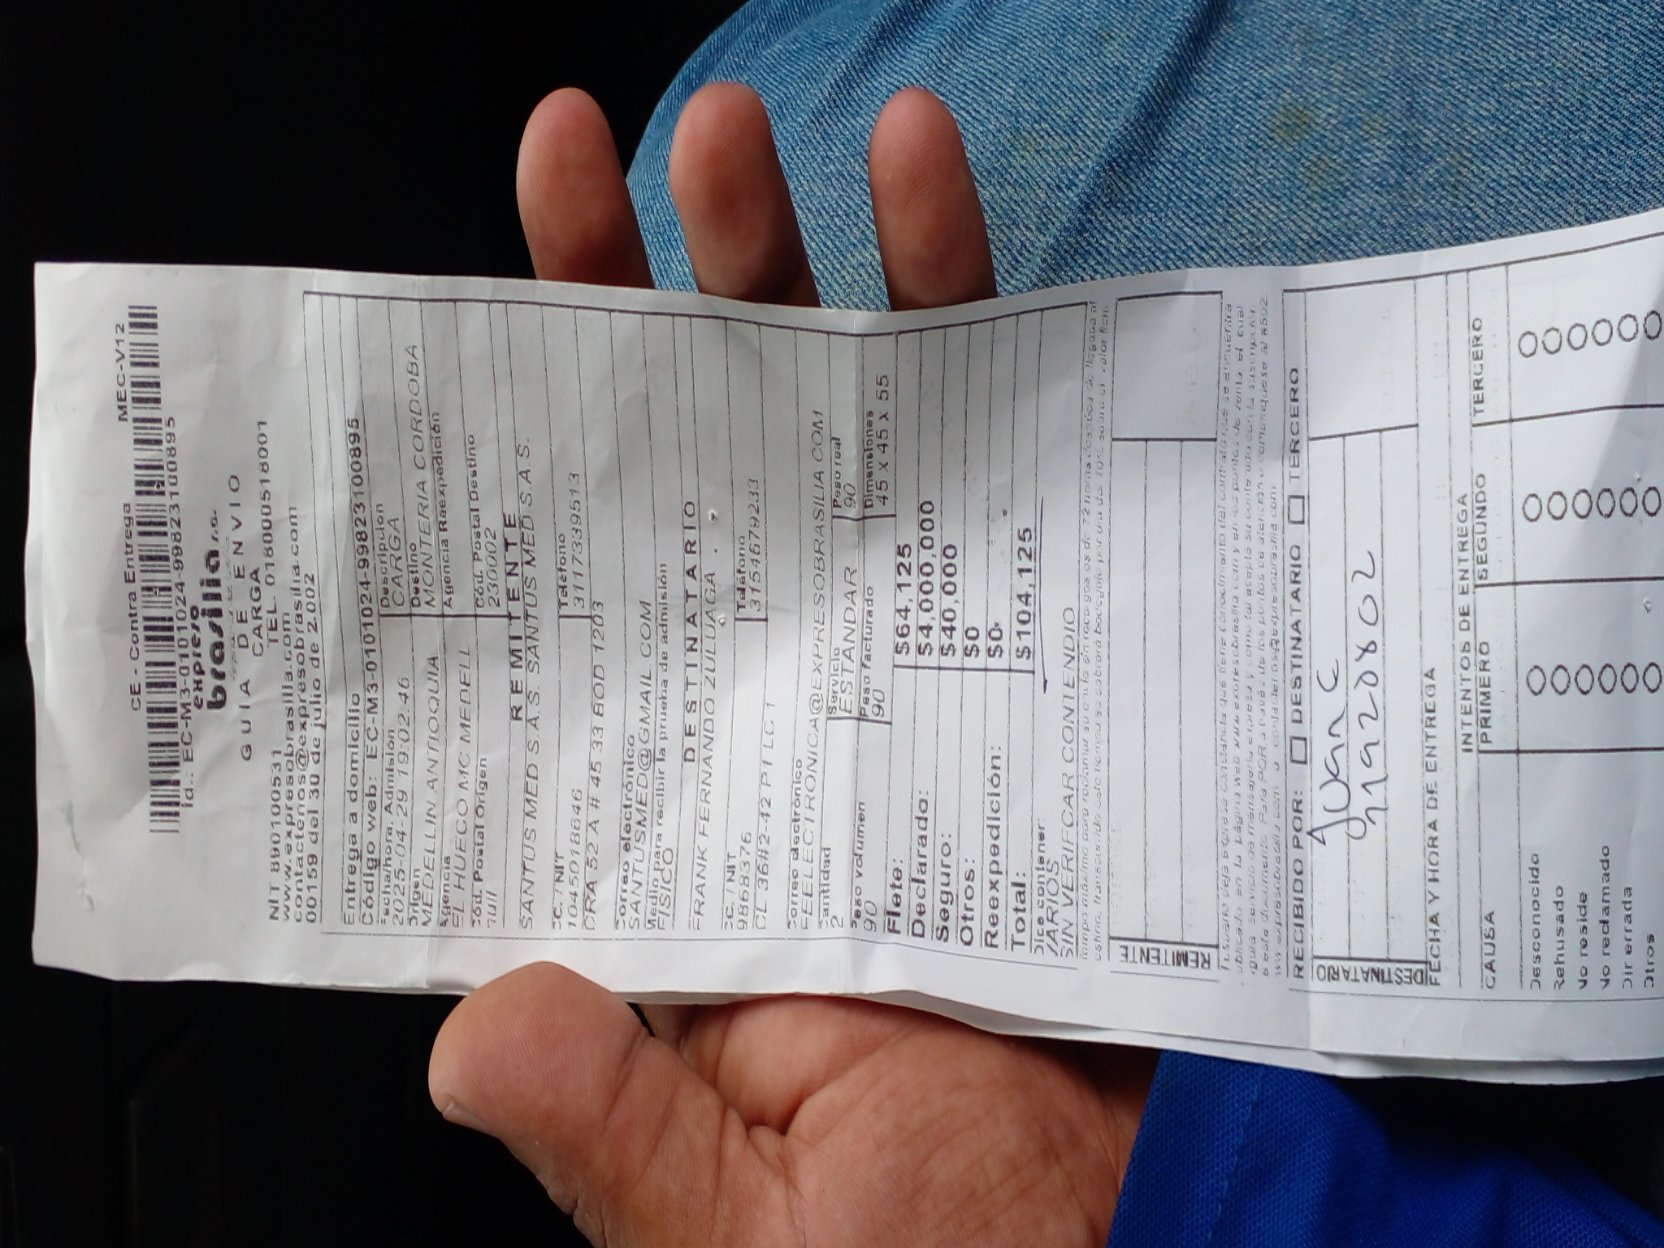 CE - Contra Entrega MEC-V12
id.: EC-M3-0101024-99823100895
expreso
brasilia s.a.
GUIA DE ENVIO
CARGA
NIT 890100531 TEL. 018000518001
www.expresobrasilia.com
contactenos@expresobrasilia.com
00159 del 30 de julio de 2.002
Entrega a domicilio
Código web: EC-M3-0101024-99823100895
Fecha/hora Admisión Descripción
2025-04-29 19:02:46 CARGA
Origen Destino
MEDELLIN ANTIOQUIA MONTERIA CORDOBA
Agencia Agencia Reexpedición
EL HUECO MC MEDELL
Cód. Postal Origen Cód. Postal Destino
null 230002
REMITENTE
SANTUS MED S.A.S. SANTUS MED S.A.S.
CC. / NIT Teléfono
1045018646 3117339513
CRA 52 A # 45 33 BOD 1203
Correo electrónico
SANTUSMED@GMAIL.COM
Medio para recibir la prueba de admisión
FISICO
DESTINATARIO
FRANK FERNANDO ZULUAGA .
CC. / NIT Teléfono
9868376 3154679233
CL 36#2-42 P1 LC 1
Correo electrónico
FEELECTRONICA@EXPRESOBRASILIA.COM
Cantidad Servicio Peso real
2 ESTANDAR 90
Peso volumen Peso facturado Dimensiones
90 90 45 x 45 x 55
Flete: $64,125
Declarado: $4,000,000
Seguro: $40,000
Otros: $0
Reexpedición: $0
Total: $104,125
Dice contener:
VARIOS
SIN VERIFCAR CONTENDIO
REMITENTE
RECIBIDO POR: DESTINATARIO TERCERO
DESTINATARIO
Juan C
FECHA Y HORA DE ENTREGA
INTENTOS DE ENTREGA
CAUSA PRIMERO SEGUNDO TERCERO
Desconocido
Rehusado
No reside
No reclamado
Dir errada
Otros